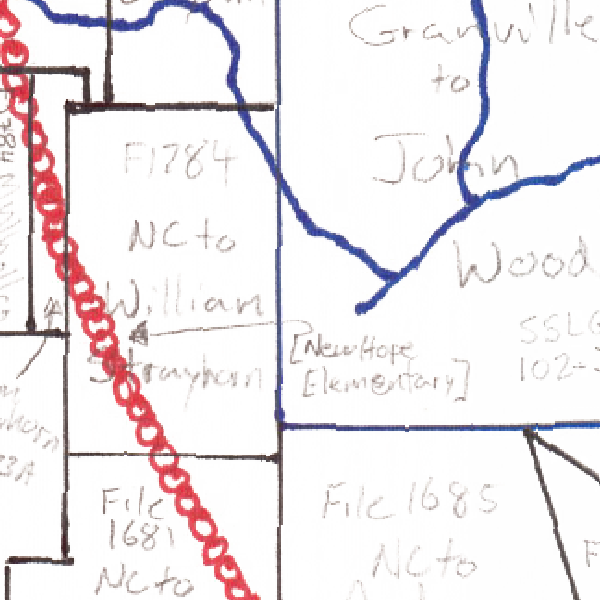 Granville
to
John
Wood
SSLG
F1784
NC to
William
Strayhorn
[New Hope
Elementary]
File
1681
NC to
File 1685
NC to
F